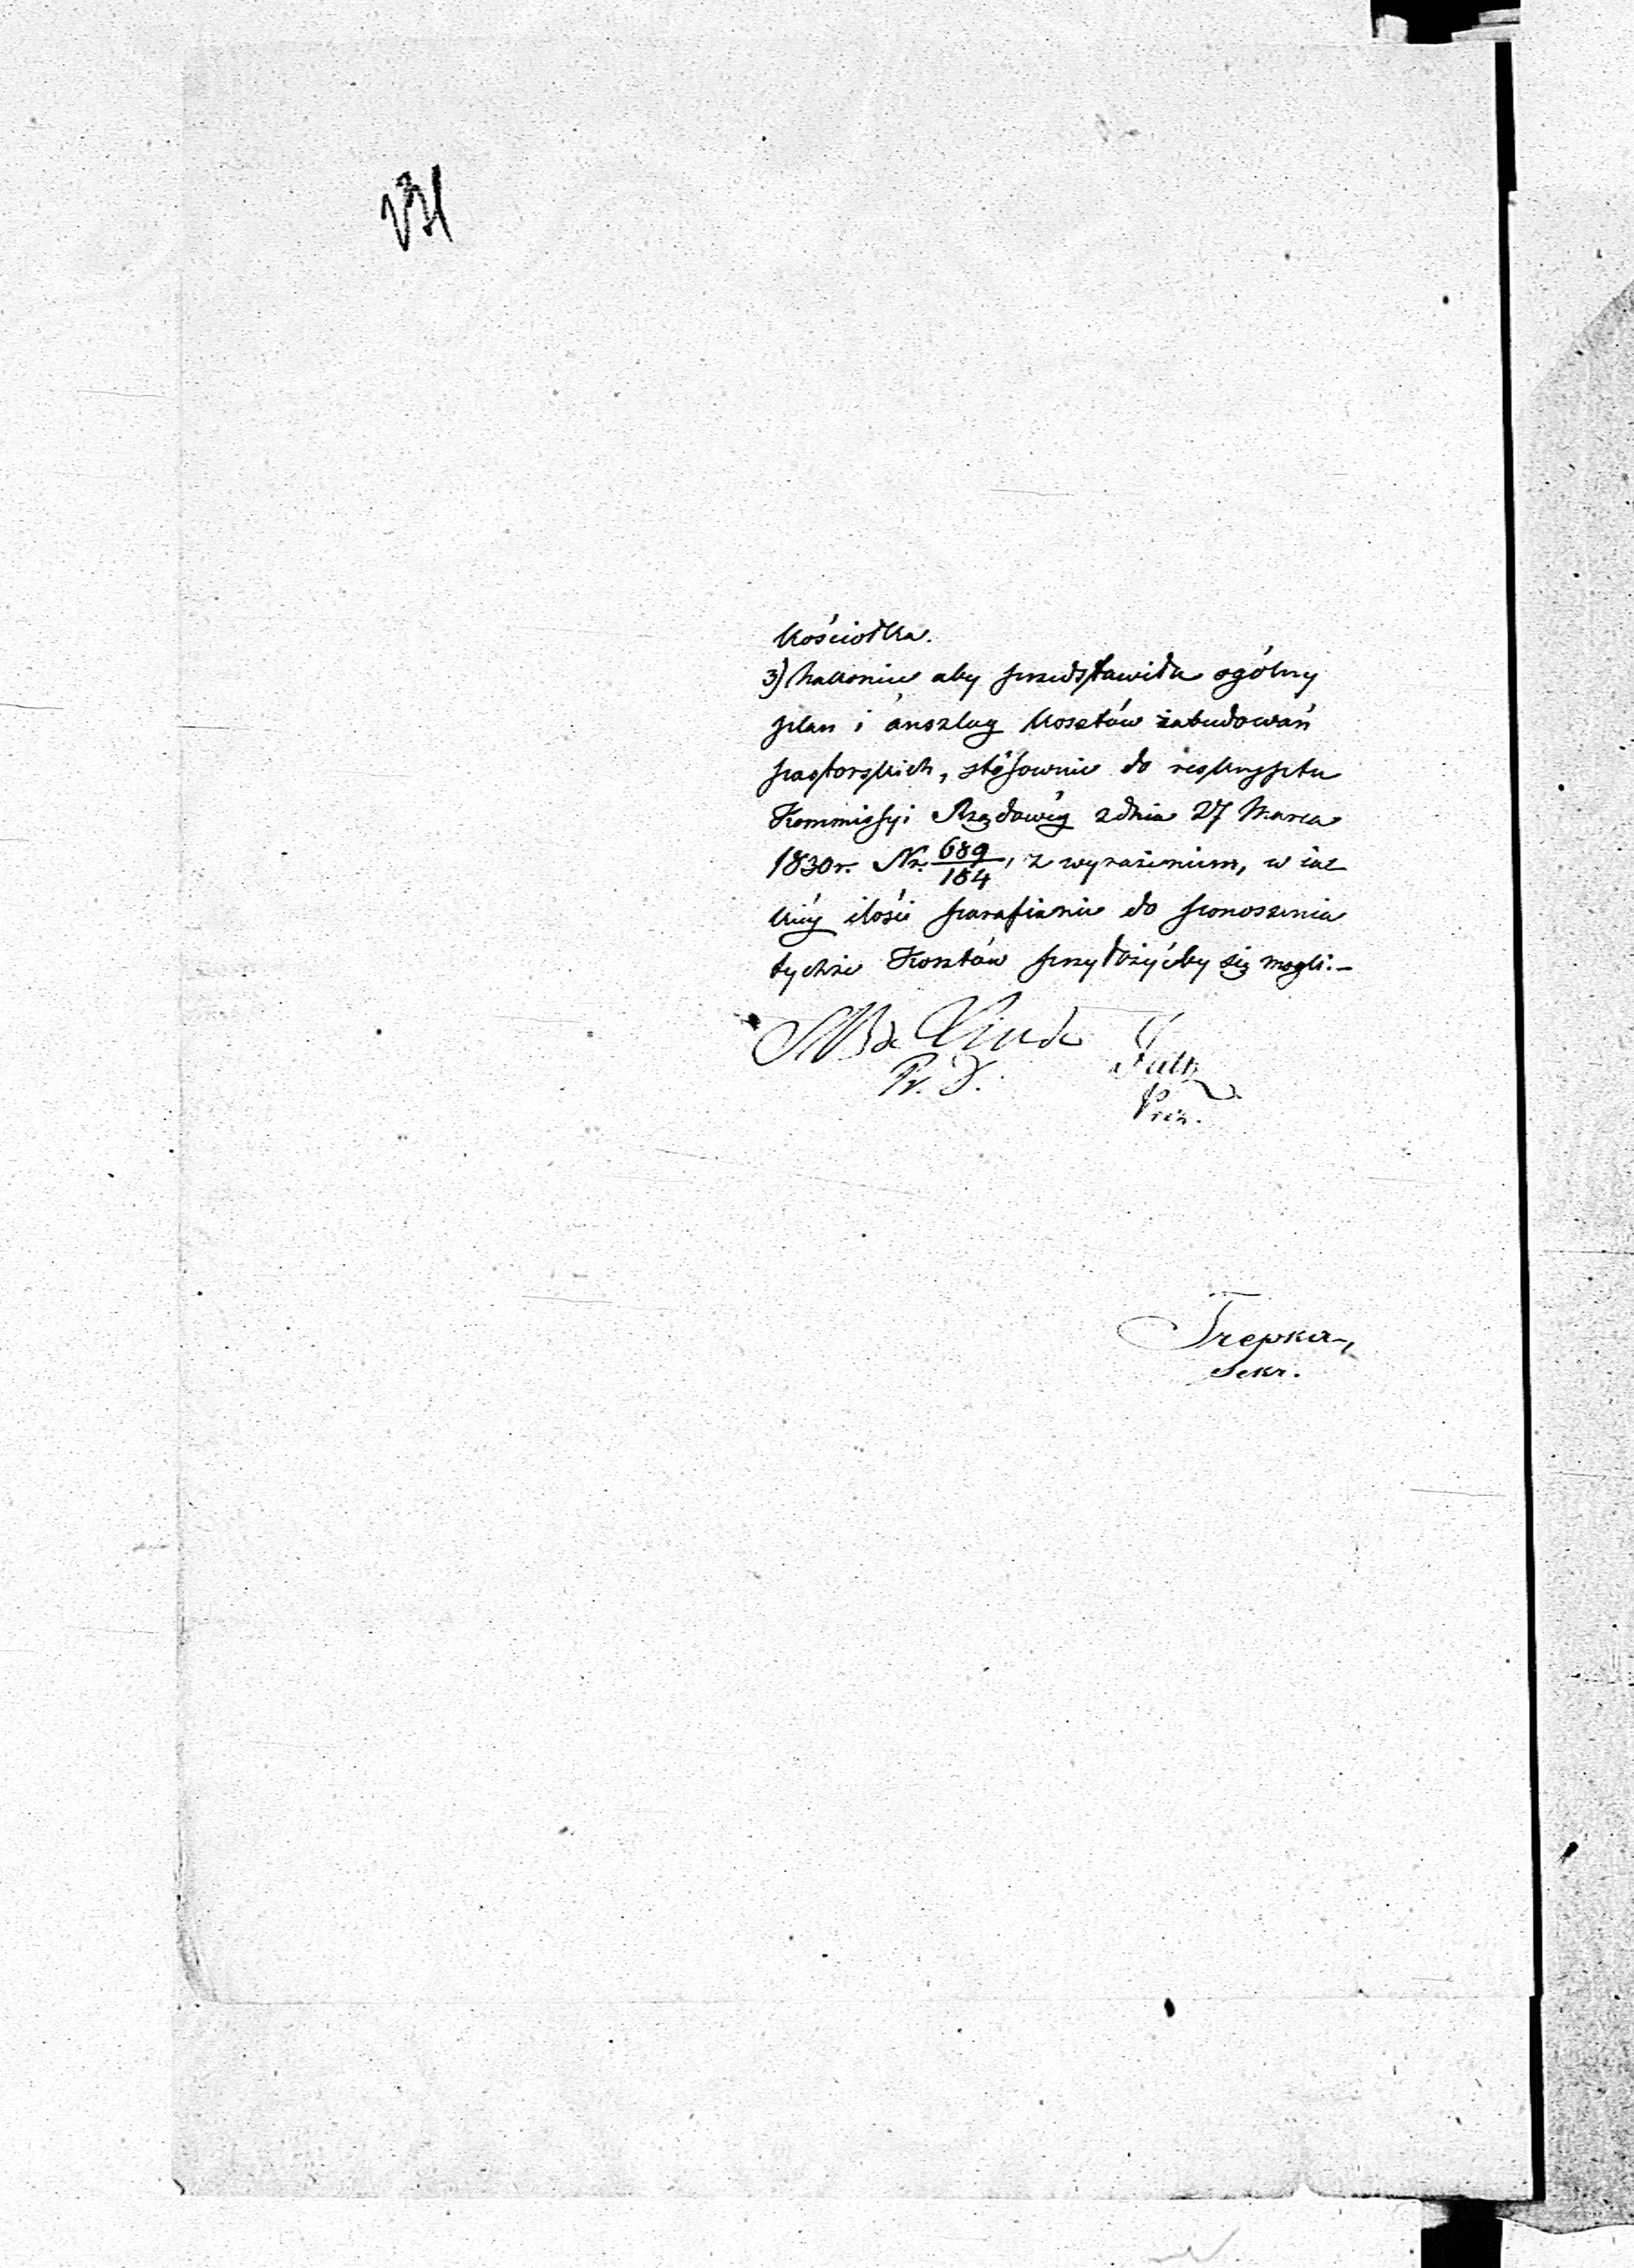 kościołka.
3) Nakoniec aby przedstawiła ogólny
plan i anszlag kosztów zabudowań
pastorskich, stósownie do reskryptu
Kommissyi Rządowéy z dnia 27 Marca
1830 r. Nr. 689/184, z wyrażeniem, w iak
kiéy ilości parafianie do ponoszenia
tychże Kosztów przyłożyćby się mogli.-
Linde
Pr. D.
Prez.
Trepka,
Sekr.